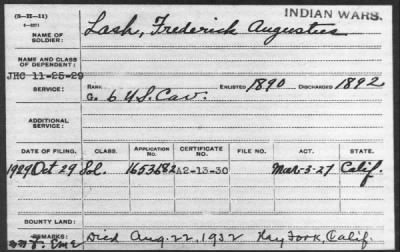 (3-H-11)
INDIAN WARS.
NAME OF SOLDIER: Lash, Frederick Augustus
NAME AND CLASS OF DEPENDENT:
JHC 11-25-29
SERVICE: RANK ENLISTED 1890 DISCHARGED 1892
G. 6 U.S. Cav.
ADDITIONAL SERVICE:
DATE OF FILING. CLASS. APPLICATION NO. CERTIFICATE NO. FILE NO. ACT. STATE.
1929 Oct 29 Sol. 1653682 A2-13-30 Mar-3-27 Calif.
BOUNTY LAND:
REMARKS: Died Aug. 22, 1932 Hay Fork, Calif.